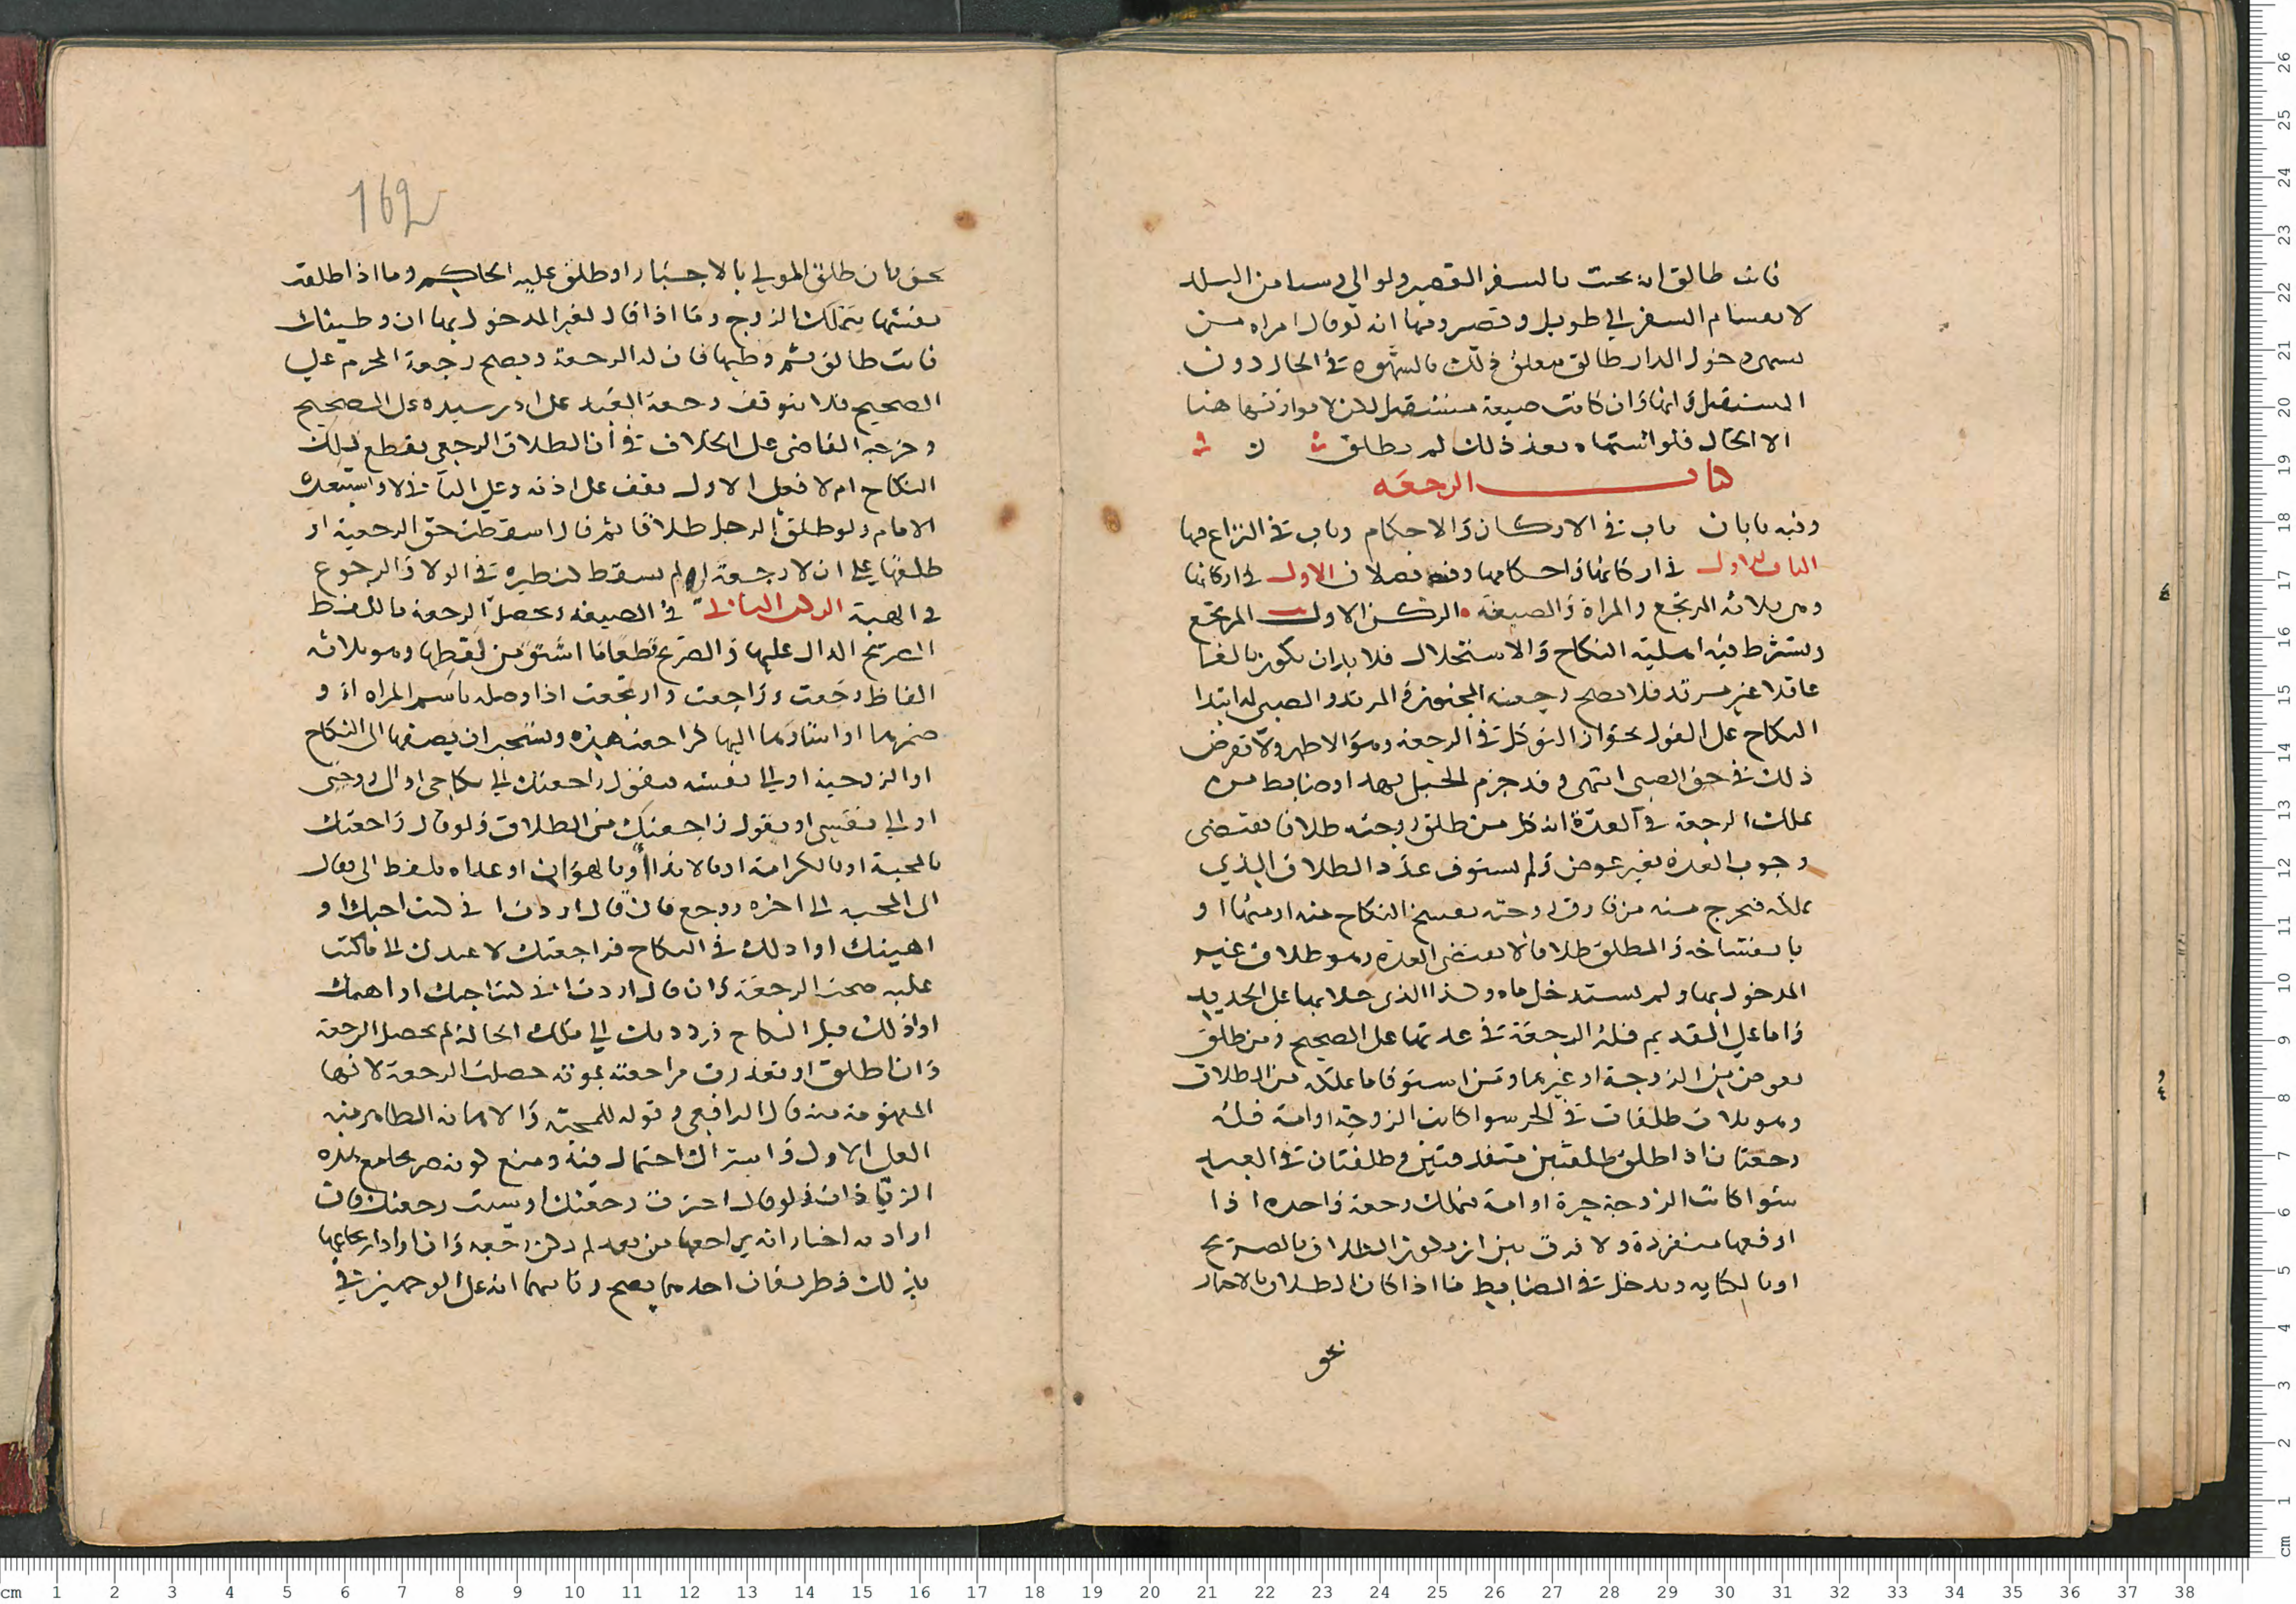 فانت طالق ان بحت بالسفر القصير ولو الى وسا من البلد
لا نعسام السفر الى طويل وقصير ومنها انه لو قال امراه من
سمى دخول الدار طالق يتعلق ذلك بالشهوه في الحال دون
المستقبل وانها وان كانت صيغة مستقبل لكن لا موادنها هنا
الا الحال فلو اشتهاه بعد ذلك لم يطلق
كتاب الرجعه
وفيه بابان باب في الاركان والاحكام وباب في النزاع فيها
الباب الاول في اركانها واحكامها وفيه فصلان الاول في اركانها
وهي ثلاثه المرتجع والمراة والصيغة الركن الاول المرتجع
ويشترط فيه اهلية النكاح والاستحلال فلا بد ان يكون بالغا
عاقلا غير مرتد فلا تصح رجعة المجنون والمرتد والصبي له ابتدا
النكاح على القول بجواز التوكل في الرجعه وهو الاظهر ولا تعرض
ذلك في حق الصبي انتهى وقد جزم الحبلى بهذا وضابط من
يملك الرجعة في العدة انه كل من طلق زوجته طلاقا يقتضي
وجوب العدة بغير عوض ولم يستوف عدد الطلاق الذي
يملكه فخرج منه من فارق زوجته بفسخ النكاح منه او منها او
بانفساخه والمطلق طلاقا لا يقتضي العدة وهو طلاق غير
المدخول بها ولم يستدخل ماه وكذا الذي خلا بها على الجديد
واما على القديم فله الرجعة في عدتها على الصحيح ومن طلق
بعوض من الزوجة او غيرها ومن استوفى ما يملكه من الطلاق
وهو ثلاث طلقات في الحر سوا كانت الزوجة او امة فله
رجعتان اذا طلق طلقتين متفرقتين وطلقتان في العبد
سوا كانت الزوجة حرة او امة يملك رجعة واحده اذا
اوقعها منفردة ولا فرق بين ان يكون الطلاق بالصريح
او بالكنايه ويدخل في الضابط ما اذا كان الطلاق بالاجبار
بحق
162
بحق بان طلق المولي بالاجبار او طلق عليه الحاكم وما اذا طلقت
نفسها بتمليك الزوج وما اذا قال لغير المدخول بها ان وطيتك
فانت طالق ثم وطيها فان له الرجعة ويصح رجعة المحرم على
الصحيح ولا يتوقف رجعة العبد على اذن سيده على الصحيح
وخرجه القاضي على الخلاف في ان الطلاق الرجعي يقطع ذلك
النكاح ام لا فعلى الاول يقف على اذنه وعلى الثاني لا واستبعده
الامام ولو طلق الرجل طلاقا ثم قال اسقطت حق الرجعية او
طلقتها على ان لا رجعة لي لم يسقط لنظيره في الولا والرجوع
في الهبة الركن الثاني في الصيغه وتحصل الرجعة باللفظ
الصريح الدال عليها والصريح قطعا ما اشتق من لفظها وهو ثلاثه
الفاظ رجعت وراجعت وارتجعت اذا وصله باسم المراه او
ضميرها او اشار بها اليها كراجعت هذه ويستحب ان يضيفها الى النكاح
او الزوجية او الى نفسه فيقول راجعتك الى نكاحي او الى زوجتي
او الى نفسي او يقول راجعتك من الطلاق ولو قال راجعتك
بالمحبة او بالكرامة او بالاذا او بالهوان او عداه بلفظ الى فقال
الى المحبه الى اخره رجع فان قال اردت اني كنت احبك او
اهينك او اذلك في النكاح فراجعتك لاعيدك الى ما كنت
عليه صحت الرجعة وان قال اردت اني كنت احبك او اهينك
او اذلك قبل النكاح فرددتك الى تلك الحالة لم تحصل الرجعة
وان اطلق او تعذرت مراجعته بموته حصلت الرجعة لانها
المفهومة منه قال الرافعي وقوله للمحبة والاهانه الظاهر فيه
الفعل الاول واستدراك احتمال فيه ومنع كونه صريحا مع هذه
الزيادات ولو قال اخترت رجعتك او شيت رجعتك فان
اراد به اخبار انه يراجعها من بعد لم تكن رجعه وان اراد ارتجاعها
بذلك فطريقان احدهما يصح وثانيهما انه على الوجهين في